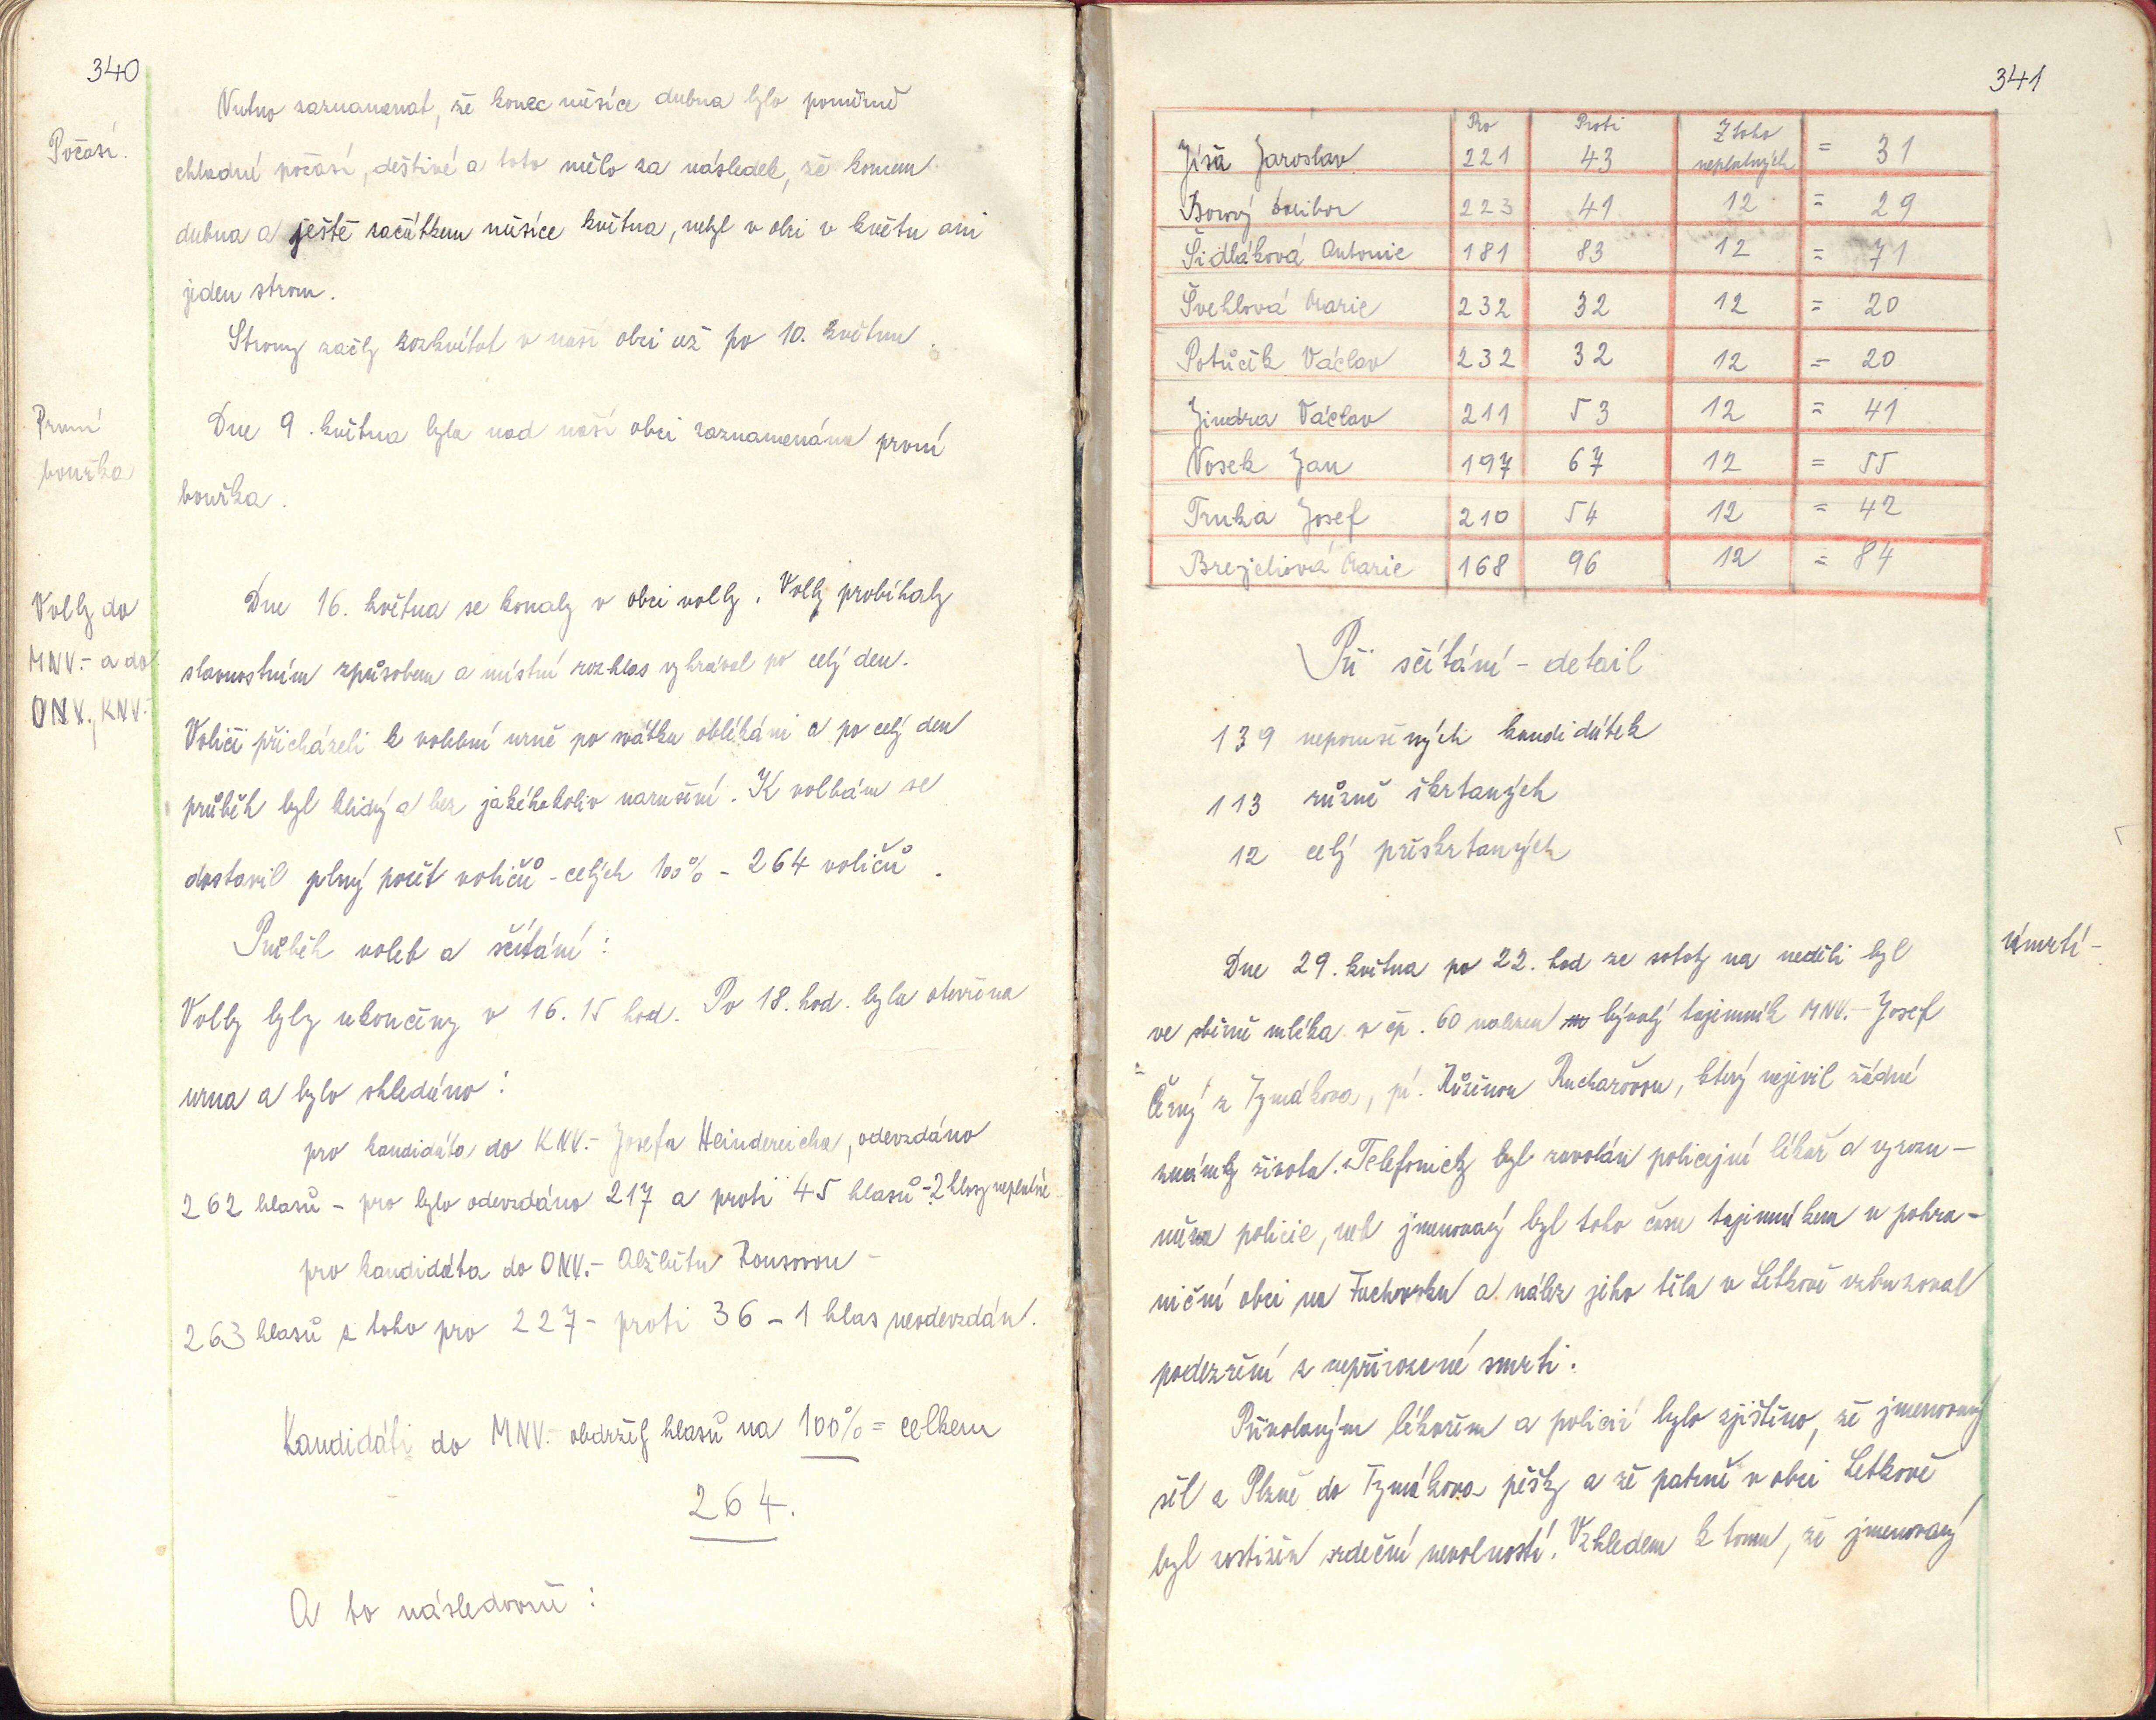 340
Počasí.
Nutno zaznamenat, že konec měsíce dubna bylo poměrně
chladné počasí, deštivé a toto mělo za následek, že koncem
dubna a ještě začátkem měsíce května, nebyl v obci v květu ani
jeden strom.
Stromy začly rozkvétat v naší obci až po 10. květnu.
První
bouřka
Dne 9. května byla nad naší obcí zaznamenána první
bouřka.
Volby do
MNV.- a do
ONV., KNV.-
Dne 16. května se konaly v obci volby. Volby probíhaly
slavnostním způsobem a místní rozhlas vyhrával po celý den.
Voliči přicházeli k volební urně po svátku oblékáni a po celý den
průběh byl klidný a bez jakéhokoliv narušení. K volbám se
dostavil plný počet voličů - celých 100% - 264 voličů.
Průběh voleb a sčítání:
Volby byly ukončeny v 16.15 hod. Po 18. hod. byla otevřena
urna a bylo shledáno:
pro kandidáta do KNV.- Josefa Heindereicha, odevzdáno
262 hlasů - pro bylo odevzdáno 217 a proti 45 hlasů - 2 hlasy neplatné
pro kandidáta do ONV.- Alžbětu Rousovou -
263 hlasů z toho pro 227 - proti 36 - 1 hlas neodevzdán.
Kandidáti do MNV.- obdrželi hlasů na 100% = celkem
264.
A to následovně:
341
Pro Proti Z toho
Jíša Jaroslav 221 43 neplatných = 31
Borový Dalibor 223 41 12 = 29
Šidláková Antonie 181 83 12 = 71
Švehlová Marie 232 32 12 = 20
Potůčik Václav 232 32 12 = 20
Jindra Václav 211 53 12 = 41
Vosek Jan 197 67 12 = 55
Trnka Josef 210 54 12 = 42
Brejchová Marie 168 96 12 = 84
Při sčítání - detail
139 neporušených kandidátek
113 různě škrtaných
12 celý přeškrtaných
úmrtí -
Dne 29. května po 22. hod ze soboty na neděli byl
ve sběrně mléka v čp. 60 nalezen bývalý tajemník MNV.- Josef
Černý z Tymákova, pí. Růženou Ruchařovou, který nejevil žádné
známky života. Telefonicky byl zavolán policejní lékař a vyrozu-
měna policie, neb jmenovaný byl toho času tajemníkem v pohra-
niční obci na Tachovsku a nález jeho těla v Letkově vzbuzoval
podezření z nepřirozené smrti.
Přivolaným lékařem a policií bylo zjištěno, že jmenovaný
šel z Plzně do Tymákova pěšky a že patrně v obci Letkově
byl postižen srdeční nevolností. Vzhledem k tomu, že jmenovaný